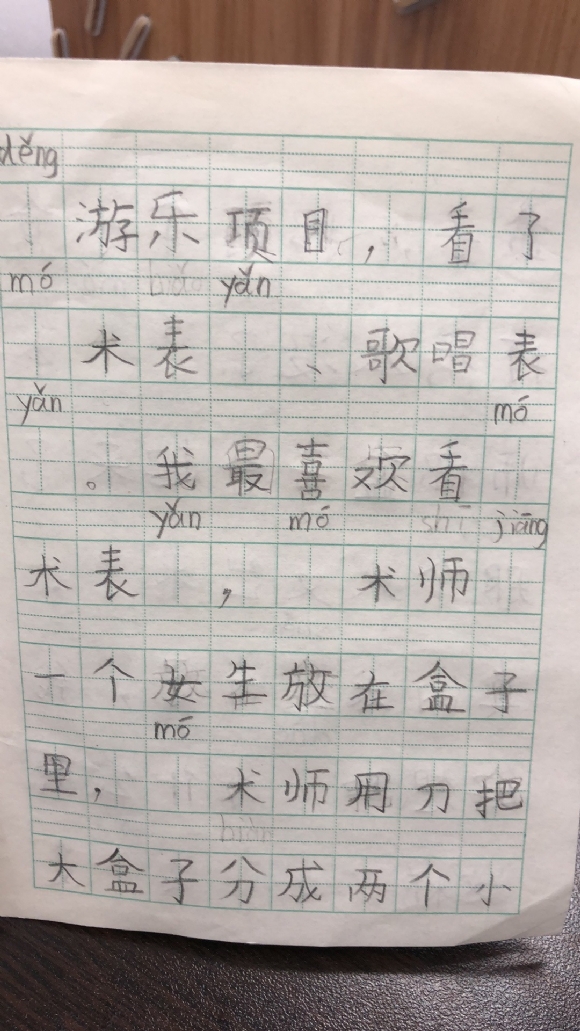 děng
游乐项目，看了
mó yǎn
术表、歌唱表
yǎn mó
。我最喜欢看
yǎn mó jiāng
术表，术师
一个女生放在盒子
mó
里，术师用刀把
大盒子分成两个小